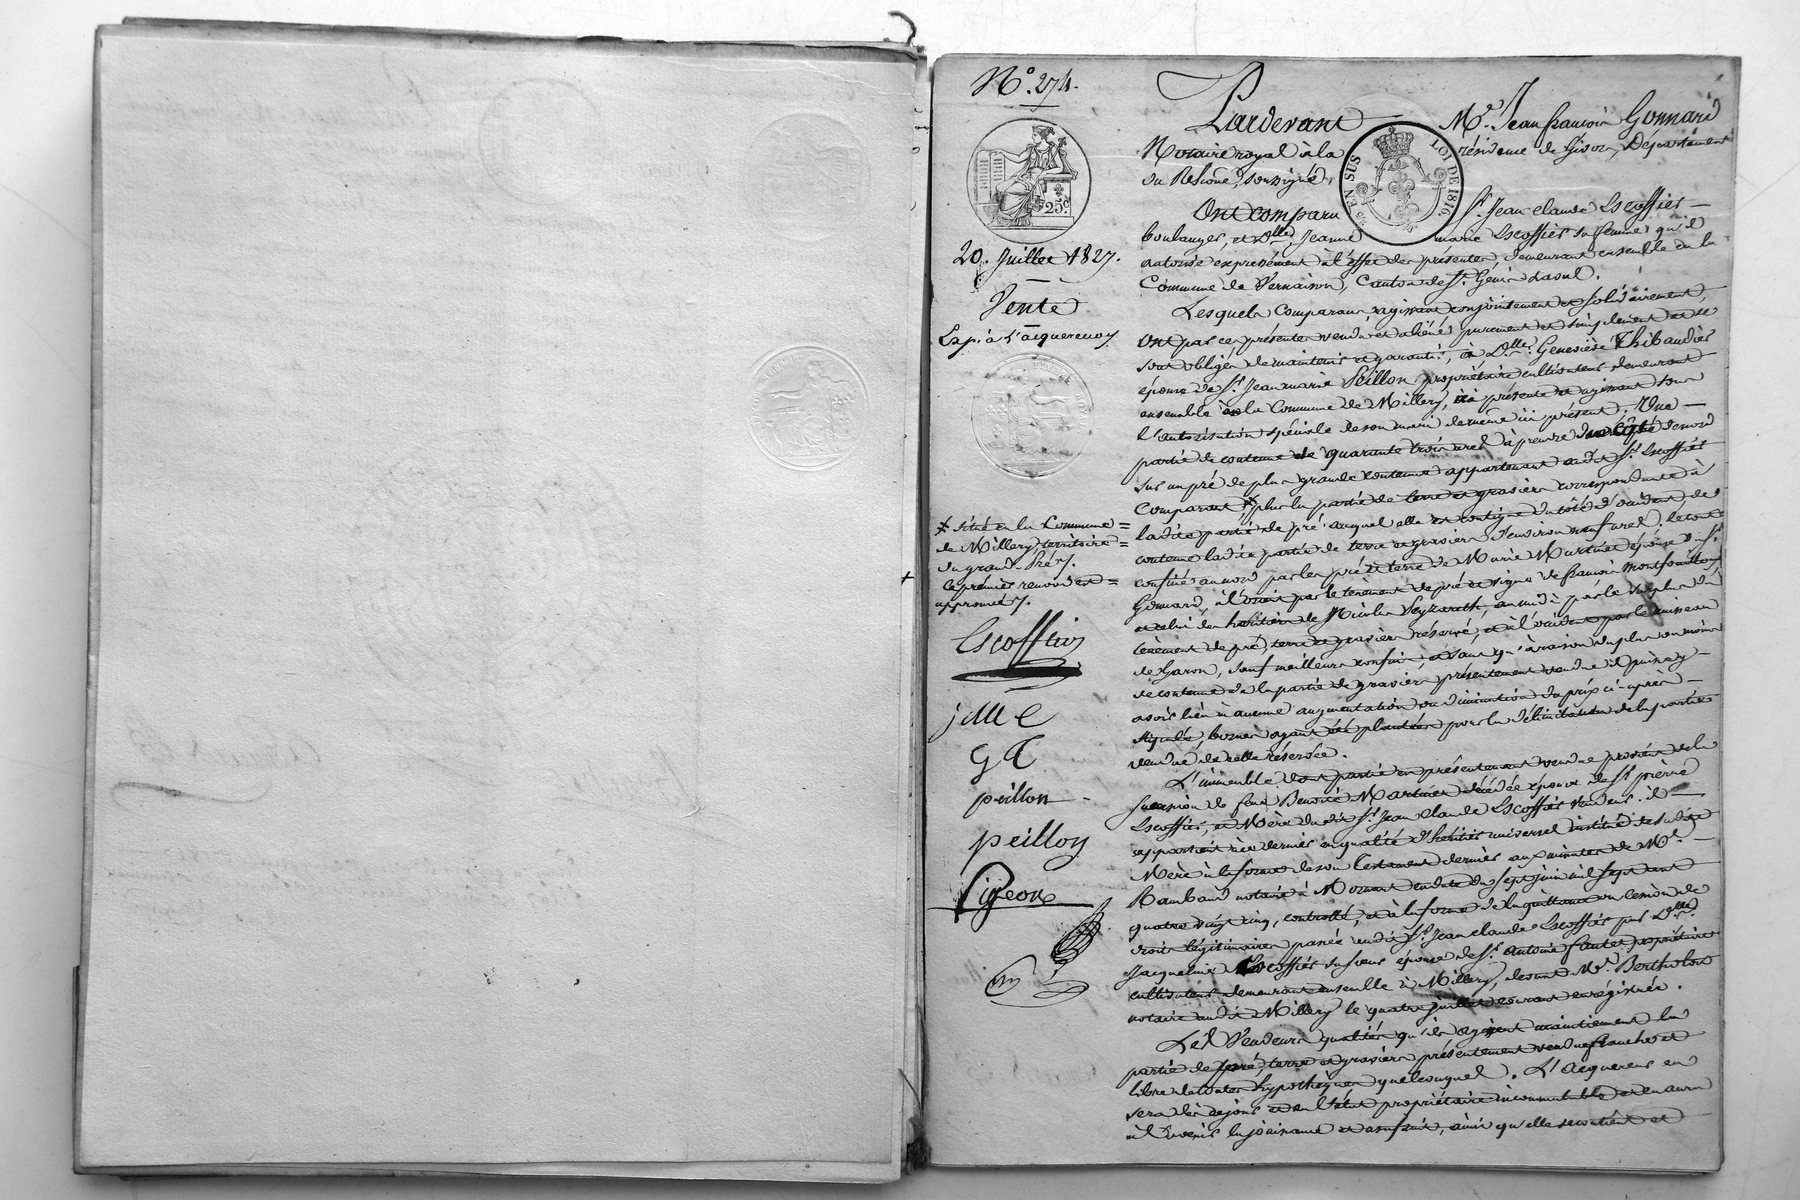 N.º 274.
25.c
20. Juillet 1827.
Vente
Exp. à l'acquereur
* situé en la Commune
de Millery territoire
du grand-Pré.
le premier renvoi est
approuvé
Escoffier
jMe
GT
peillon
peillon
Pigeon
Pardevant M.e Jean françois Gonnard
Notaire royal à la résidence de Givors, Département
du Rhône, soussigné,
5/5 EN SUS
LOI DE 1816.
Ont comparu S.r Jean Claude Escoffier
boulanger, et D.lle Jeanne marie Escoffier sa femme qu'il
autorise expressément à l'effet des présentes, demeurant ensemble en la
Commune de Vernaison, Canton de S.t Genis Laval.
Lesquels Comparans agissant conjointement et solidairement,
Ont par ces présentes vendu et aliéné purement et simplement et se
sont obligés de maintenir et garantir, à D.lle Geneviève Thibaudier
épouse de S.r Jean marie Peillon propriétaire cultivateur demeurant
ensemble en la Commune de Millery, ici présente et agissant sous
l'autorisation spéciale de son mari de même ici présent. Une
partie de contenue de quarante trois ares à prendre du côté de nord
sur un pré de plus grande contenue appartenant audit S.r Escoffier
Comparant, * plus la partie de terre et graviers correspondante à
ladite partie de pré auquel elle est contigue du côté d'occident de
contenue ladite partie de terre et graviers d'environ neuf ares. Le tout
confiné au nord par les pré et terre de Marie Martinet épouse de S.r
Gonnard, à l'orient par le tènement de pré et vigne de françois
et celui des héritiers de Nicolas Peyzarath, au midi par le surplus du
tènement de pré, terre et graviers réservé, et à l'occident par le ruisseau
de Garon, sauf meilleurs confins, et sans qu'à raison du plus ou moins
de contenue de la partie de graviers présentement vendue il puisse y
avoir lieu à aucune augmentation ou diminution du prix ci-après
stipulé, bornes ayant été plantées pour la délimitation de la partie
vendue de celle réservée.
L'immeuble dont partie est présentement vendue provient de la
succession de feue Benoite Martinet décédée épouse de S.r pierre
Escoffier, et Mère du dit S.r Jean Claude Escoffier vendeur. il
appartient à ce dernier en qualité d'héritier universel institué de sadite
Mère à la forme de son testament dernier aux minutes de M.e
Rambaud notaire à Mornant en date du sept juin mil sept cent
quatre vingt cinq, controllé, et à la forme de la quittance ou cession de
droits légitimaires passée audit S.r Jean Claude Escoffier par D.lle
Jacqueline Escoffier sa sœur épouse de S.r antoine propriétaire
cultivateur demeurant ensemble à Millery, devant M.e Bertholon
notaire audit Millery le quatre juillet courant enrégistrée.
Les Vendeurs qualités qu'ils agissent maintiennent la
partie de pré, terre et graviers présentement vendue franche et
libre de toutes hypothèques quelconques. L'Acquereur en
sera dès ce jour et en l'état propriétaire incommutable et en aura
à l'avenir la jouissance et , ainsi qu'elle se contient et